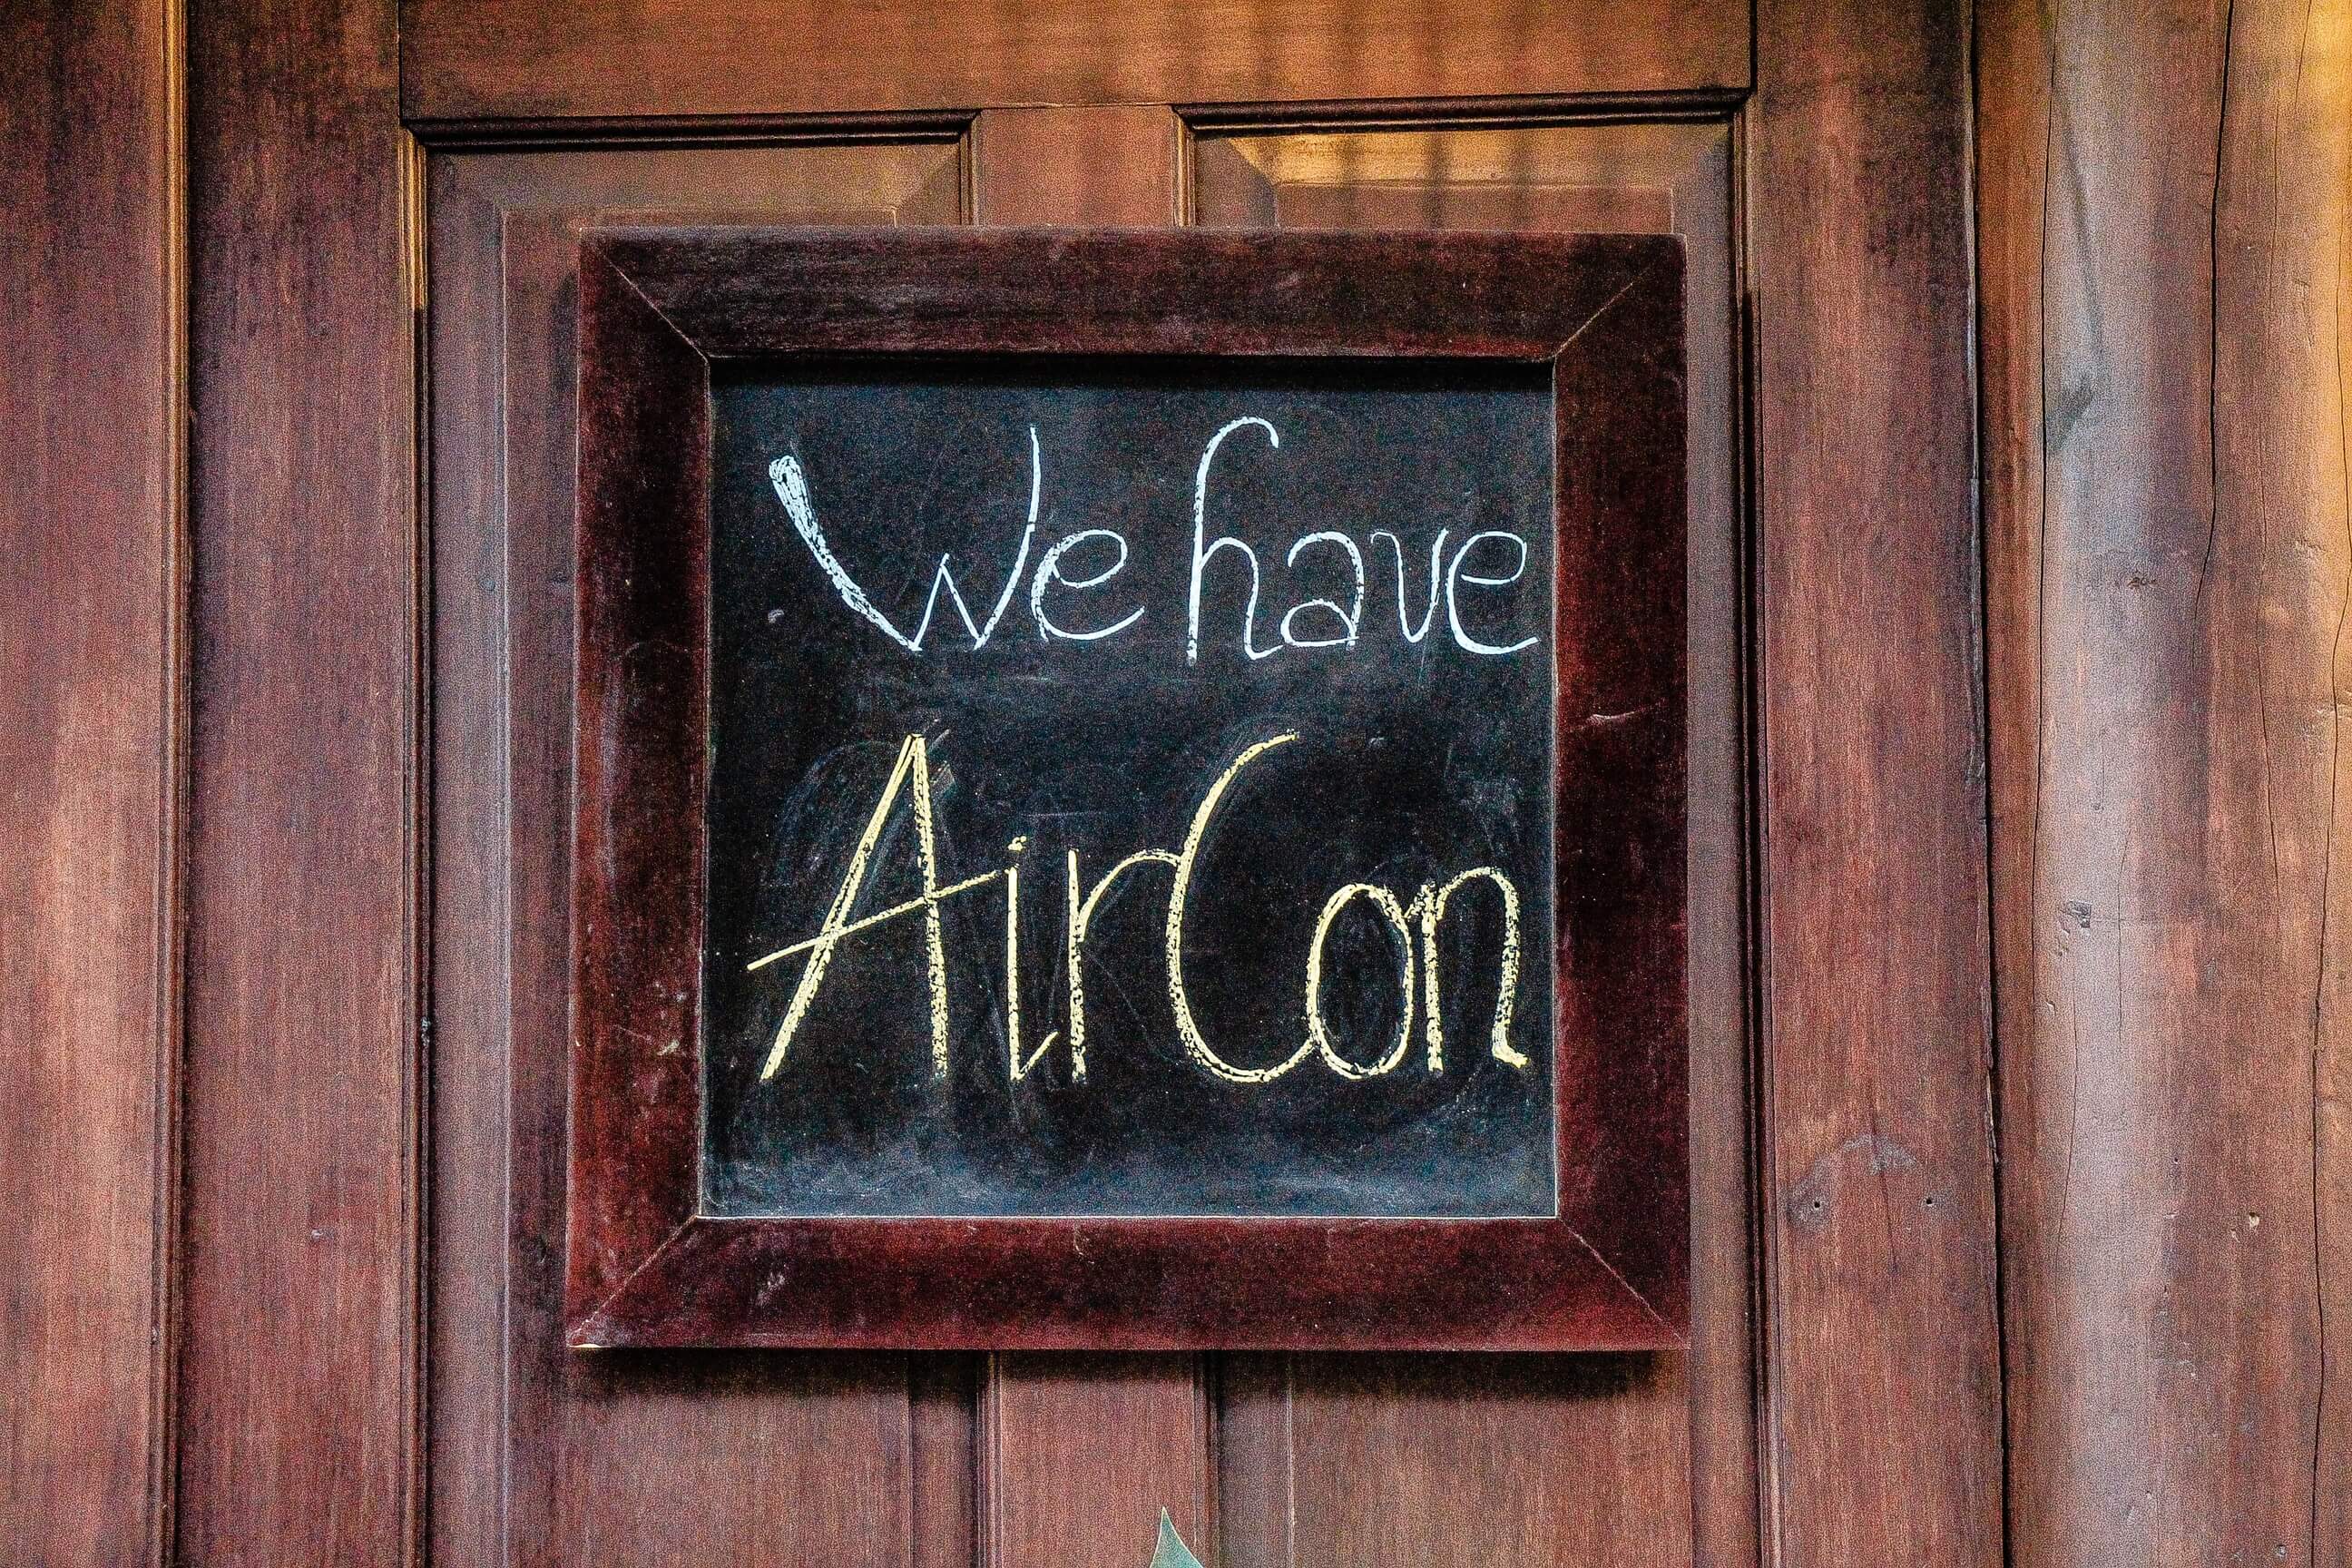 We have
AirCon